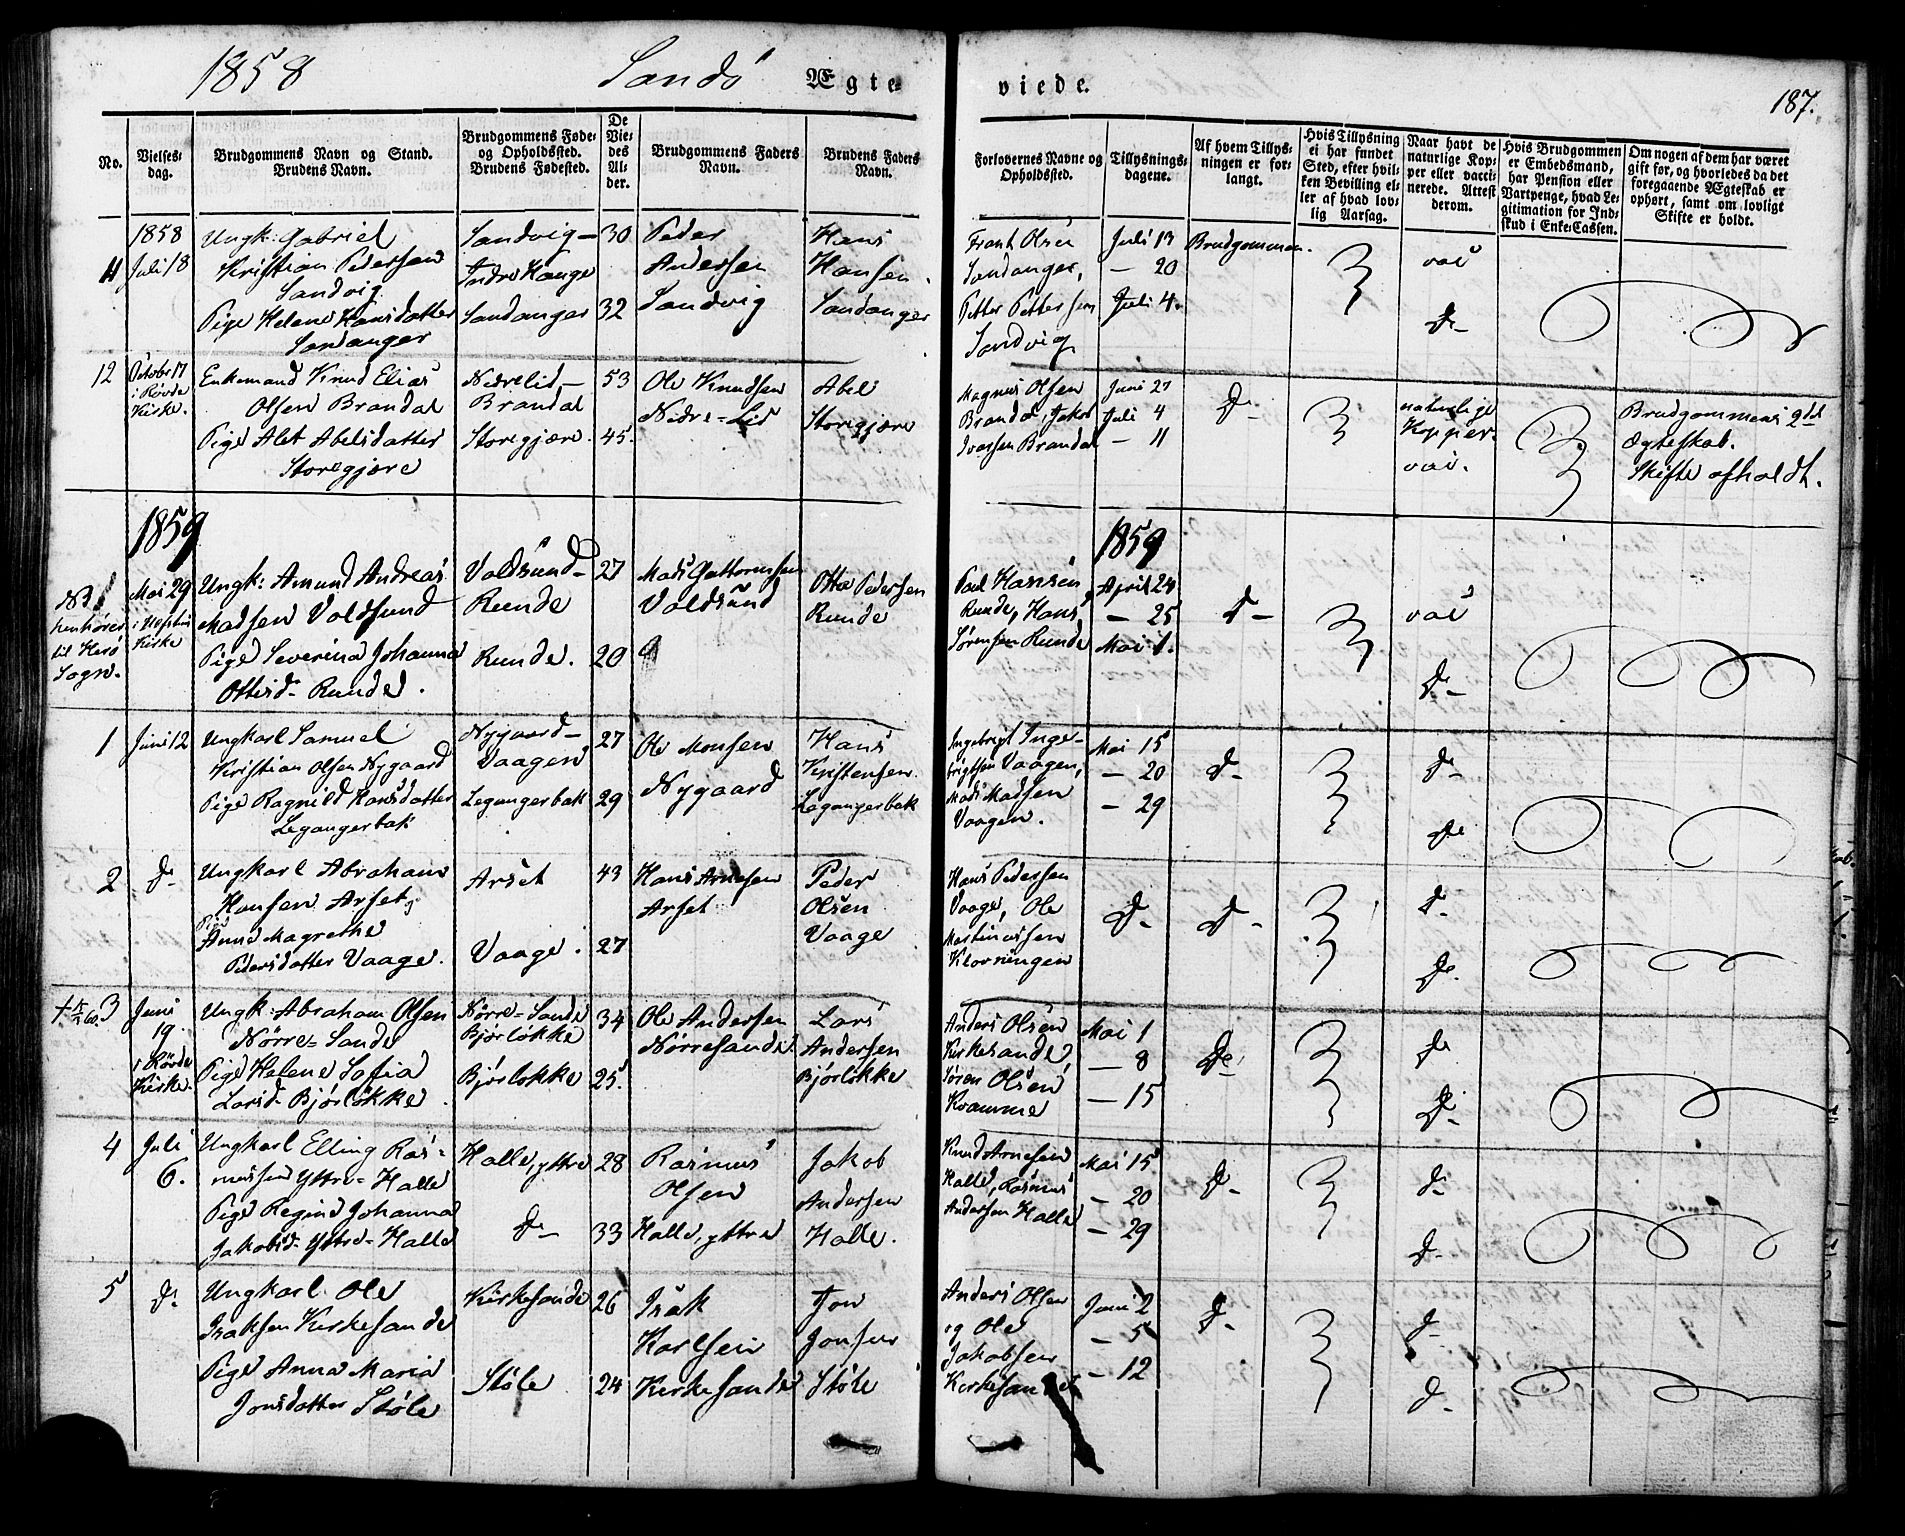 1858 Sandö Ægte viede. 187.
No.
Vielses-
dag.
Brudgommens Navn og Stand.
Brudens Navn.
Brudgommens Føde-
og Opholdssted.
Brudens Fødested.
De
Vie-
des
Al-
der.
Brudgommens Faders
Navn.
Brudens Faders
Navn.
Forlovernes Navne og
Opholdssted.
Tillysnings-
dagene.
Af hvem Tillys-
ningen er for-
langt.
Hvis Tillysning
ei har fundet
Sted, efter hvil-
ken Bevilling el-
ler af hvad lov-
lig Aarsag.
Naar havt de
naturlige Kop-
per eller vacci-
nerede. Attest
derom.
Hvis Brudgommen
er Embedsmand,
har Pension eller
Vartpenge, hvad Le-
gitimation for Ind-
skud i Enke-Cassen.
Om nogen af dem har været
gift før, og hvorledes da det
foregaaende Ægteskab er
ophørt, samt om lovligt
Skifte er holdt.
11
1858
Juli 18
Ungk: Gabriel
Kristian Pedersen
Sandvig
Pige Helene Hansdatter
Sandanger
Sandvig
Indre Hauge
Sandanger
30
32
Peder
Andersen
Sandvig
Hans
Hansen
Sandanger
Olsen
Sandanger,
Petter Pettersen
Sandvig
Juli 13
— 20
Juli 4.
Brudgommen.
vac
Do
12
Octobr 17
i Rövde
Kirke.
Enkemand Knud Elias
Olsen Brandal
Pige Alet Abelsdatter
Storegjære
Nedrelid
Brandal
Storegjære.
53
45.
Ole Knudsen
Nedre-Lid
Abel
Storegjære
Magnus Olsen
Brandal, Jakob
Ivarsen Brandal
Juni 27
Juli 4
— 11
Do
naturlige
Kopper.
vac.
Brudgommens 2det
Ægteskab.
Skifte afholdt.
1859
1859
henhører
til Herö
Sogn.
Mai 29
i
Kirke
Ungk: Amund Andreas
Madsen Voldsund
Pige Severina Johanna
Ottesd. Runde.
Voldsund
Runde
Runde.
27
20
Mads Guttormsen
Voldsund
Otte Pedersen
Runde
Paul Hansen
Runde, Hans
Sørensen Runde
April 24
— 25
Mai 1.
Do
vac
Do
1
Juni 12
Ungkarl Samuel
Kristian Olsen Nygaard
Pige Ragnild Hansdatter
Legangerbak
Nygaard
Vaagen
Legangerbak
27
29
Ole Monsen
Nygaard
Hans
Kristensen
Legangerbak
Ingebrigt Inge-
brigtsen Vaagen,
Mads Madsen
Vaagen.
Mai 15
— 20
— 29
Do
Do
Do
2
Do
Ungkarl Abraham
Hansen Arset
Pige
Anne Magrethe
Pedersdatter Vaage.
Arset
Vaage.
43
27
Hans Arnesen
Arset
Peder
Olsen
Vaage
Hans Pedersen
Vaage, Ole
Martinussen
Klovningen
Do
Do
Do
Do
3
Juni
19.
i Rövde
Kirke.
Ungk: Abraham Olsen
Nörre-Sande
Pige Helene Sofia
Larsd. Bjørløkke
Nörre-Sande
Bjørløkke
Bjørløkke
34
25.
Ole Andersen
Nörresande
Lars
Andersen
Bjørløkke
Anders Olsen
Kirkesande,
Søren Olsen
Kvamme
Mai 1
— 8
— 15
Do
Do
Do
4
Juli
6.
Ungkarl Elling Ras-
mussen Yttre-Halle
Pige Regine Johanna
Jakobsd. Yttre-Halle
Halle, yttre
Do
28
33
Rasmus
Olsen
Halle, yttre
Jakob
Andersen
Halle.
Knud Arnesen
Halle, Rasmus
Andersen Halle
Mai 15
— 20
— 29
Do
Do
Do
5
Do
Ungkarl Ole
Isaksen Kirkesande
Pige Anna Maria
Jonsdatter Støle
Kirkesande
Støle
26
24
Isak
Karlsen
Kirkesande
Jon
Jonsen
Støle
Anders Olsen
og Ole
Jakobsen
Kirkesande
Juni 2
— 5
— 12
Do
Do
Do